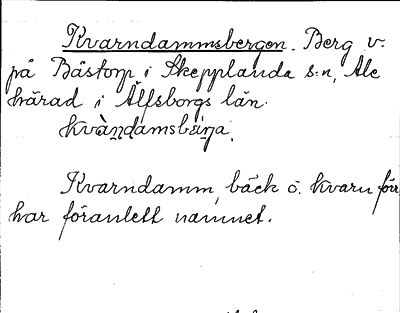 Kvarndammsbergen. Berg v.
på Båstorp i Skepplanda s:n, Ale
härad i Älfsborgs län.
kvàn̥damsbär̥ṇa.
Kvarndamm, bäck o. kvarn förr
har föranlett namnet.